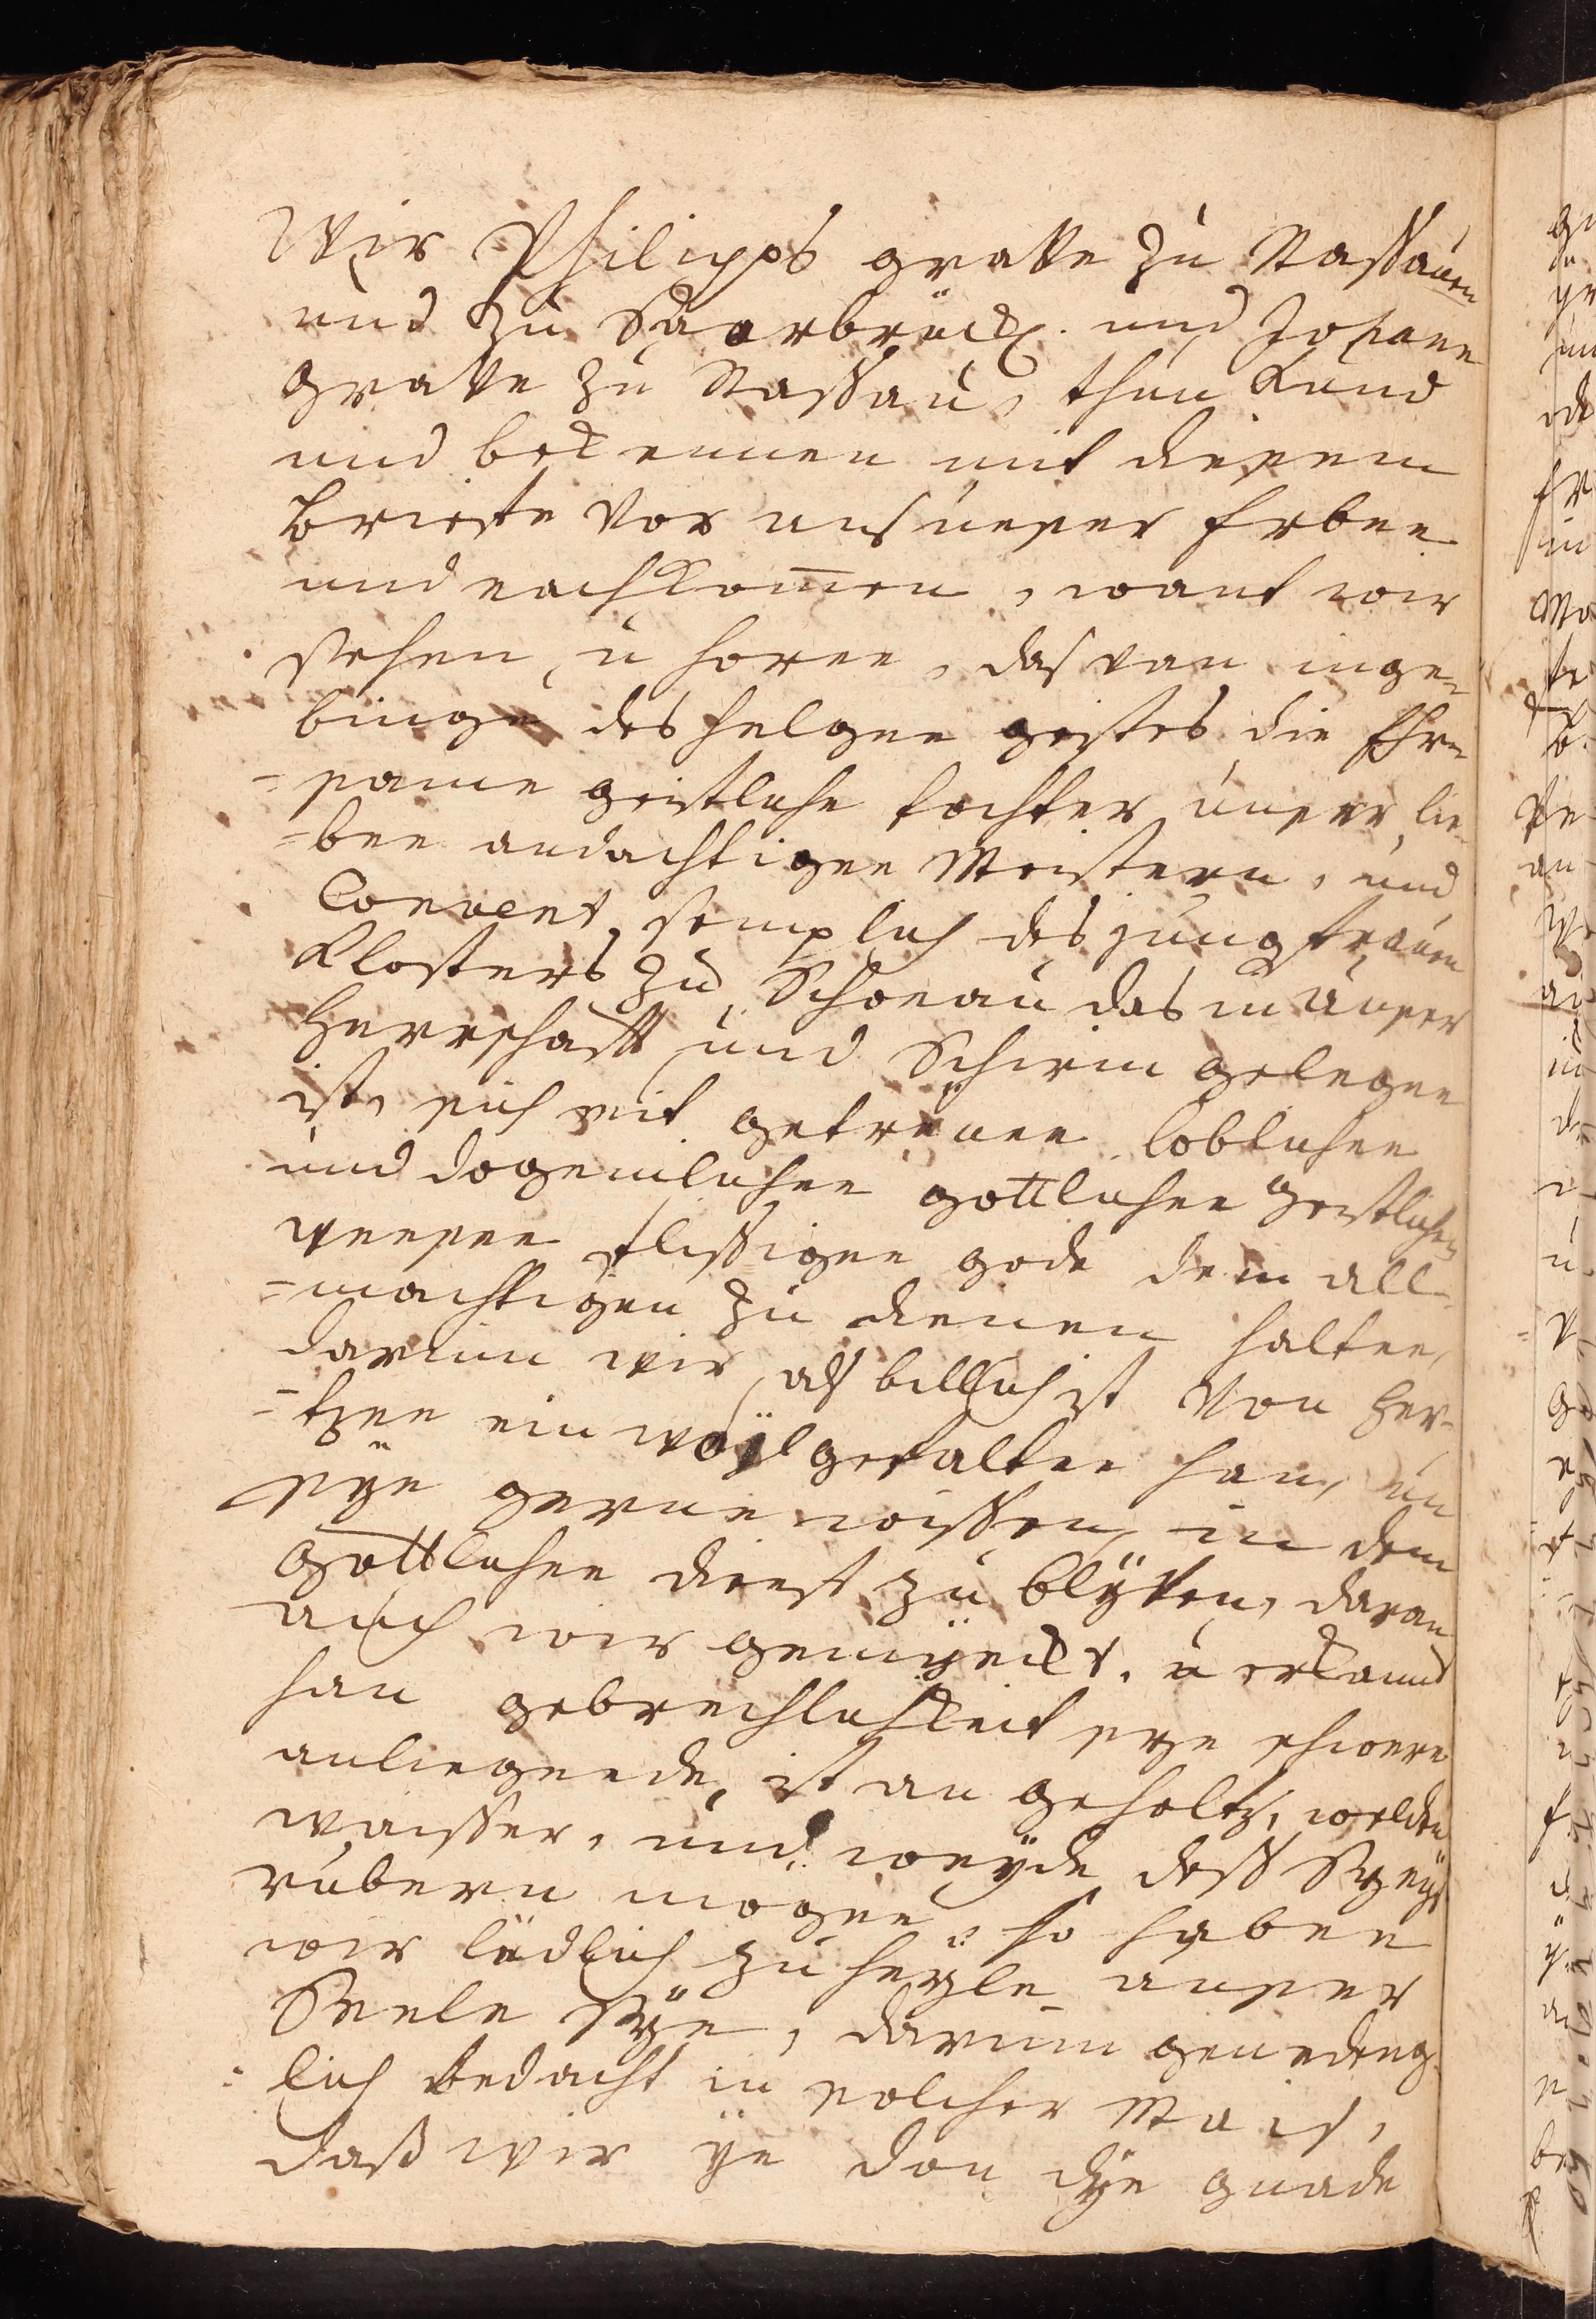 Wir Philipps grave zu Nassauen
und zu Saarbrück. und Johann
Grave zu Nassau, thun kund
und bekennen mit diesem
Brieffe vor uns unser Erben
und nachkom̄en, want wir
sehen u horen, das van inge-
binge des helgen geistes die Ehr-
-same geistliche tochter unser lie
-ben andachtigen Meistern, und
Convent semplich des jungfrauen
Klosters zu Schonau das in unser
Herrschafft und Schirm gelegen
ist, sich mit getreuen loblichen
und dogentlichen gottlichen geistlichen
weesen flissigen gode dem all-
-machtigen zu dienen halten,
darinn wir als billich ist von her-
-tzen ein woylgefalten han, un
sye gerne wissen, in dem
Gottlichen dienst zu blyven, daran
auch wir gemyrckt, u erkannt
han gebrechlichkeit sye schwere
anliegende, ist an geholtz, welden
waisser, und weyde dess Sye
 mögen, so haben
wir lüdlich zu heyle unser
Seele sye, darinn geneedeg
-lich bedacht in solcher Mais,
daß wir ye don dye gnade